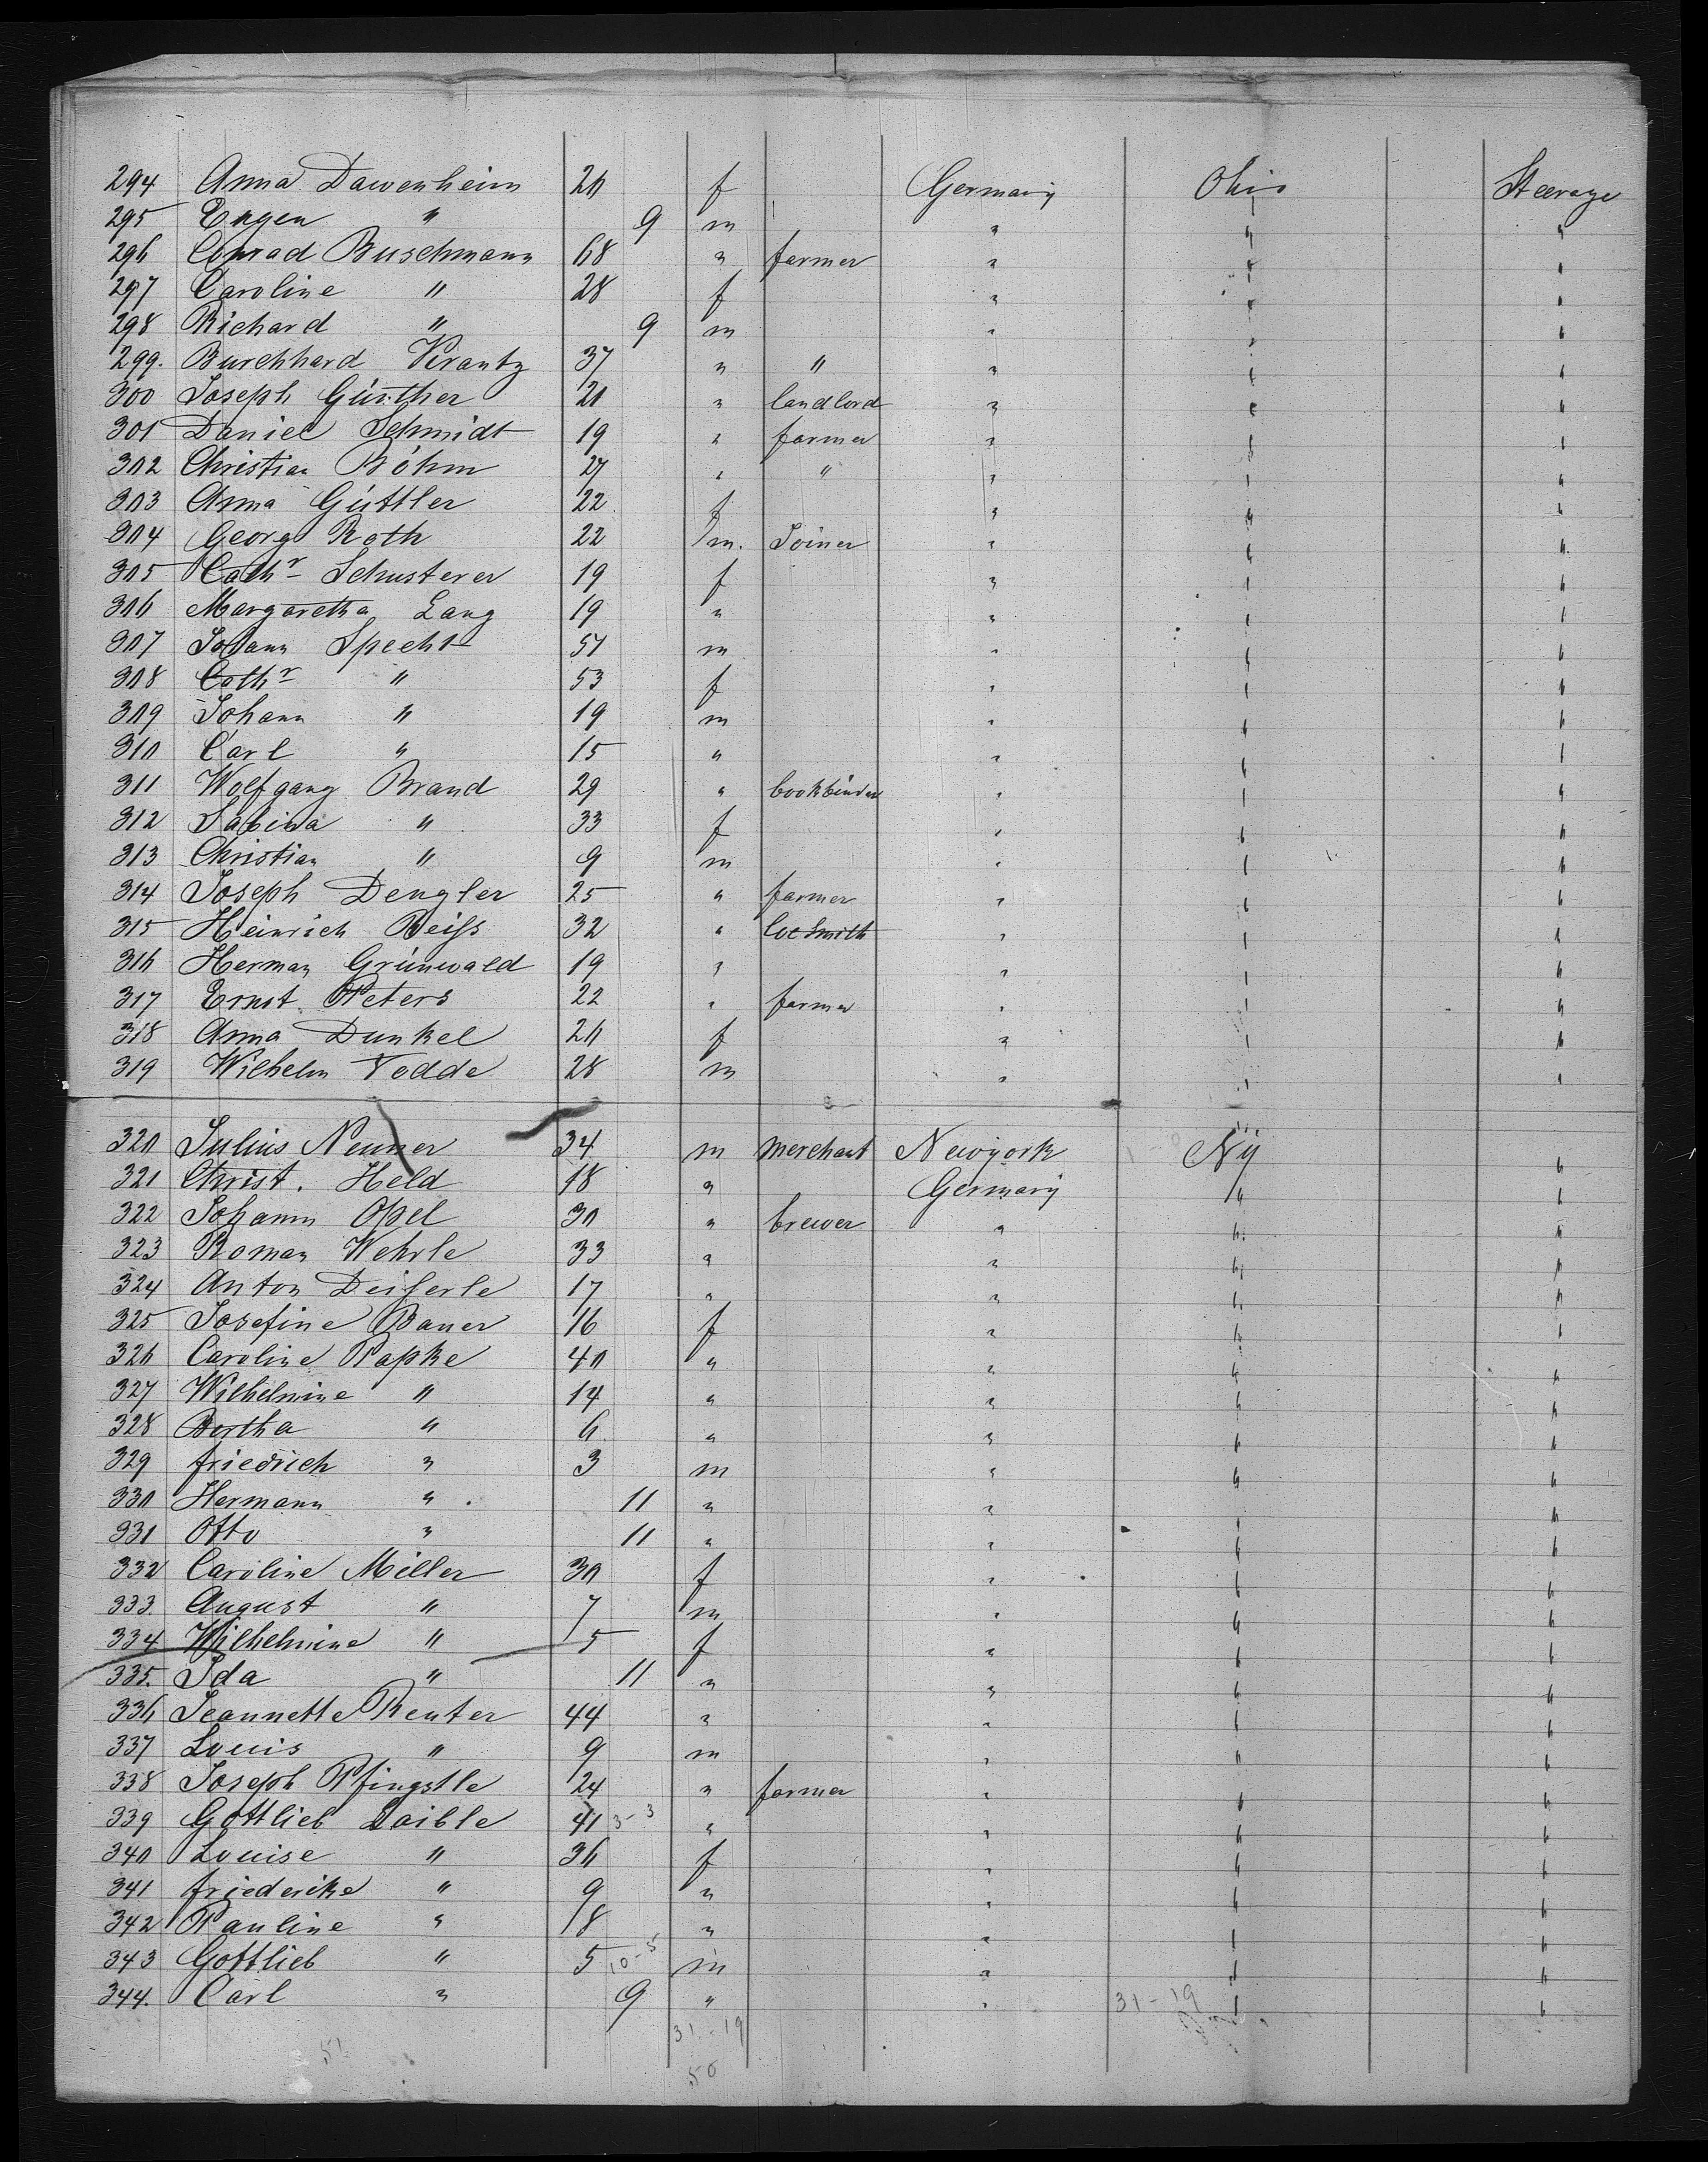 294 Anna Dawenheim 20 f Germany Ohio Steerage
295 Eugen " 9 m " " "
296 Conrad Buschmann 68 " farmer " " "
297 Caroline " 28 f " " "
298 Richard " 9 m " " "
299. Burchhard Krantz 37 " " " " "
300 Joseph Günther 20 " landlord " " "
301 Daniel Schmidt 19 " farmer " " "
302 Christian Böhm 27 " " " " "
303 Anna Güttler 22 f " " "
304 Georg Roth 22 m. Joiner " " "
305 Cathr Schusterer 19 f " " "
306 Margaretha Lang 19 " " " "
307 Johann Specht 57 m " " "
308 Cathr " 53 f " " "
309 Johann " 19 m " " "
310 Carl " 15 " " " "
311 Wolfgang Brand 29 " bookbinder " " "
312 Sabina " 33 f " " "
313 Christian " 9 m " " "
314 Joseph Dengler 25 " farmer " " "
315 Heinrich Reiß 32 " locsmith " " "
316 Herman Grünwald 19 " " " "
317 Ernst Peters 22 " farmer " " "
318 Anna Dunkel 20 f " " "
319 Wilhelm Todde 28 m " " "
320 Julius Neumer 34 m merchant Newyork Ny "
321 Christ. Held 18 " Germany " "
322 Johann Opel 30 " brewer " " "
323 Roman Wehrle 33 " " " "
324 Anton Deißerle 17 " " " "
325 Josefine Bauer 16 f " " "
326 Caroline Papke 40 " " " "
327 Wilhelmine " 14 " " " "
328 Bertha " 6 " " " "
329 friedrich " 3 m " " "
330 Hermann " 11 " " " "
331 Otto " 11 " " " "
332 Caroline Miller 30 f " " "
333. August " 7 m " " "
334 Wilhelmine " 5 f " " "
335. Ida " 11 " " " "
336 Jeannette Reuter 44 " " " "
337 Louis " 9 m " " "
338 Joseph Pfingstle 24 " farmer " " "
339 Gottlieb Laible 41 3-3 " " " "
340 Louise " 36 f " " "
341 friederike " 9 " " " "
342 Pauline " 8 " " " "
343 Gottlieb " 5 10-5 m " " "
344. Carl " 9 " " " "
31-19
31-19
51
50